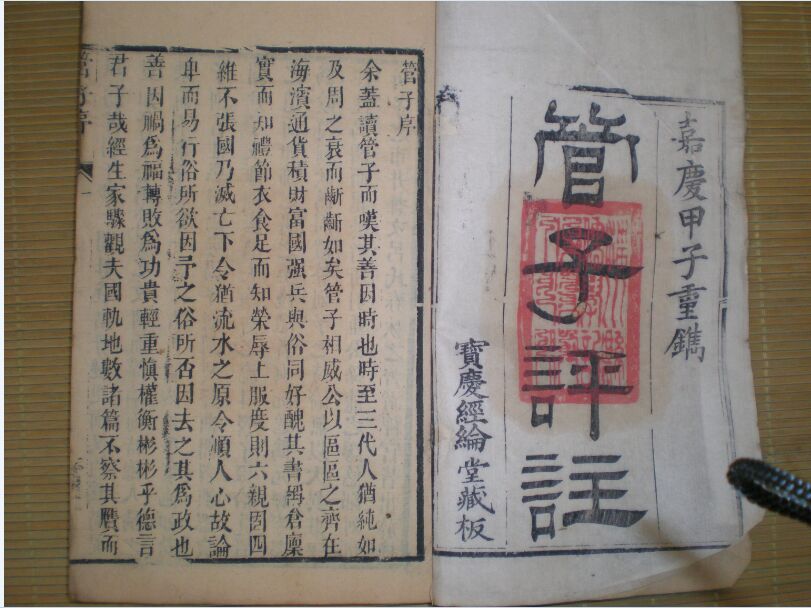 嘉慶甲子重鐫
管子評註
寶慶經綸堂藏板
管子序
余蓋讀管子而嘆其善因時也時至三代人猶純如
及周之衰而斷斷如矣管子相威公以區區之齊在
海濱通貨積財富國强兵與俗同好醜其書稱倉廩
實而知禮節衣食足而知榮辱上服度則六親固四
維不張國乃滅亡下令猶流水之原令順人心故論
卑而易行俗所欲因予之俗所否因去之其為政也
善因禍為福轉敗為功貴輕重慎權衡彬彬乎德言
君子哉經生家驟觀夫國軌地數諸篇不察其贋而
管子序
一